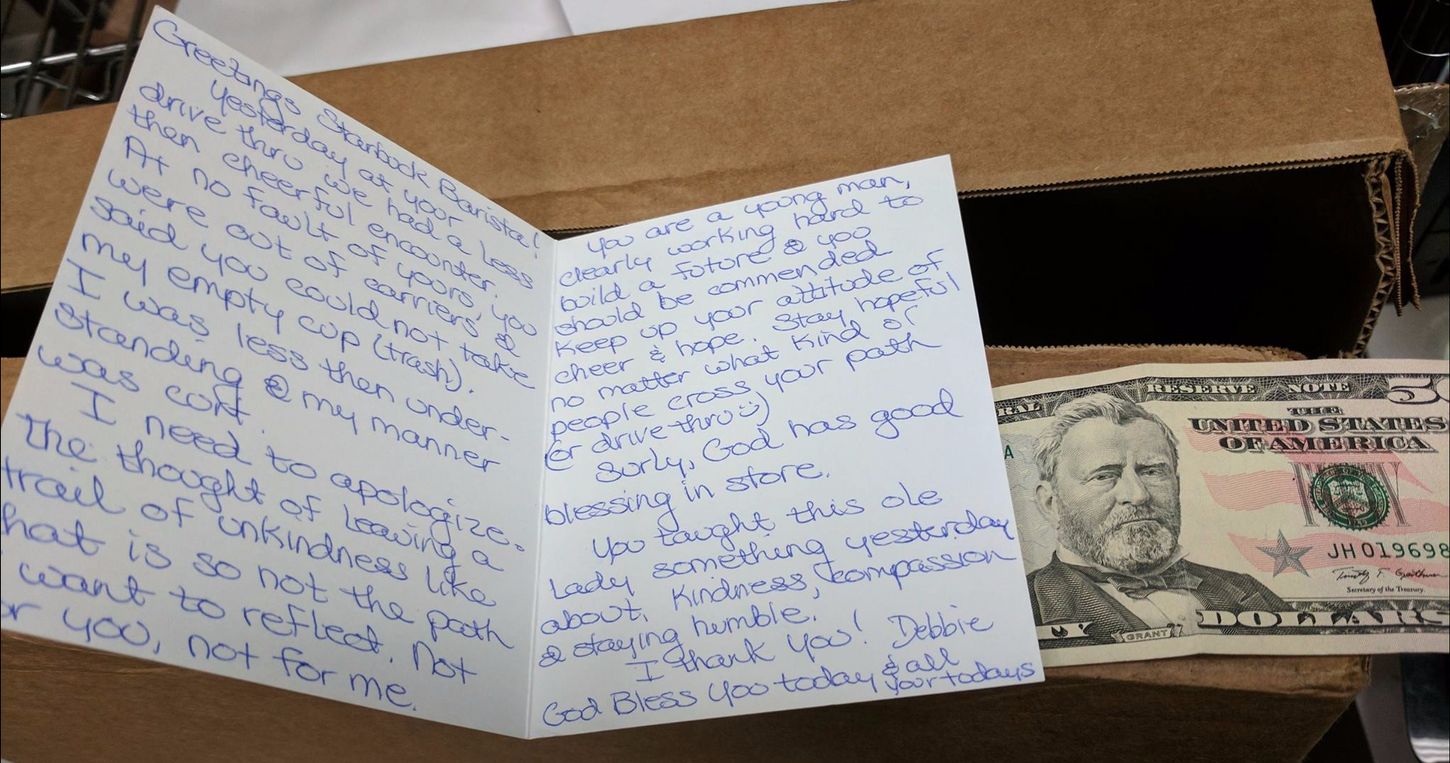 Greetings Starbock Barista!
Yesterday at your
drive thru we had a less
then cheerful encounter.
At no fault of yours, you
were out of carriers &
said you could not take
my empty cup (trash).
I was less then under-
standing & my manner
was cort.
I need to apologize.
The thought of leaving a
trail of unkindness like
that is so not the path
I want to reflect. Not
for you, not for me.
You are a young man,
clearly working hard to
build a future & you
should be commended
Keep up your attitude of
cheer & hope. Stay hopeful
no matter what kind of
people cross your path
(or drive thru :))
Surly, God has good
blessing in store.
You taught this ole
Lady something yesterday
about, kindness, compassion
& staying humble.
I thank you! Debbie
God Bless you today & all
your todays
RAL RESERVE NOTE 50
THE
UNITED STATES
OF AMERICA
A
JH019698
Secretary of the Treasury.
GRANT
DOLLARS